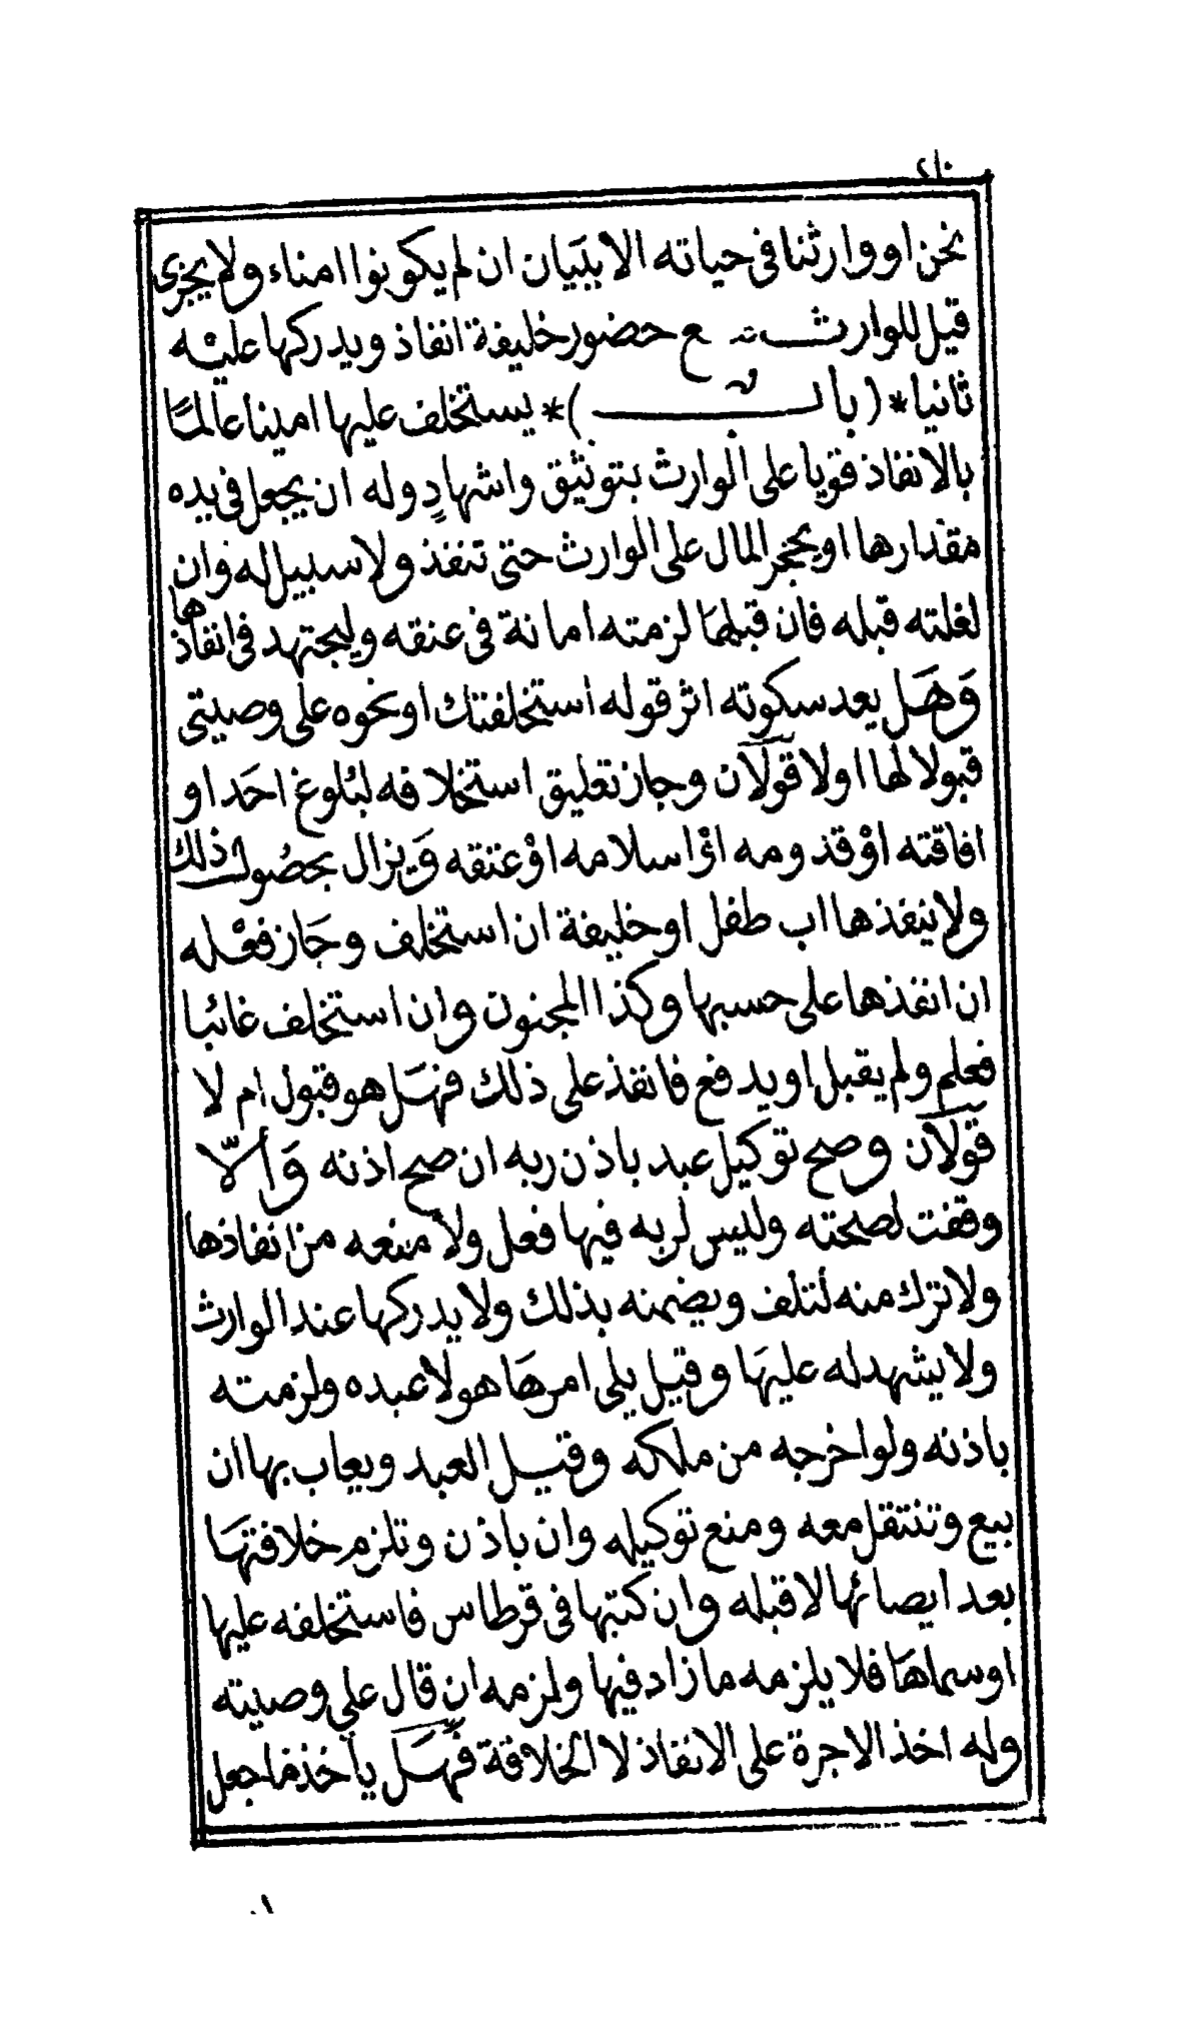 نحن او وارثنا فى حياته الا ببَيان ان لم يكونوا امناء ولا يجزى
قيل للوارث مع حضور خليفة انفاذ ويدركها عليْه
ثانيا * (باب) * يستخلف عليها امينا عالمًا
بالانفاذ قويا على الوارث بتوثيق واشهادٍ وله ان يجعل فى يده
مقدارها او يحجر المال على الوارث حتى تنفذ ولا سبيل له وان
لغلته قبله فان قبلهَا لزمته امانة فى عنقه وليجتهد فى انفاذها
وَهَل يعد سكوته اثر قوله استخلفتك او نحوه على وصيتى
قبولا لها اولا قولاَن وجاز تعليق استخلافه لبُلوغ احَد او
افاقته اوْ قدومه اوْ اسلامه اوْ عتقه وَيزال بحصُول ذلك
ولا ينفذها اب طفل او خليفة ان استخلف وجَاز فعْله
ان انفذها على حسبها وكذا المجنون وان استخلف غائبا
فعلم ولم يقبل او يدفع فانفذ على ذلك فهَل هو قبول ام لا
قولاَن وصح توكيل عبد باذن ربه ان صح اذنه وَألاّ
وقفت لصحته وليس لربه فيها فعل ولا منعه من انفاذها
ولا ترك منه لتتلف ويضمنه بذلك ولا يدركها عند الوارث
ولا يشهد له عليهَا وقيل يلى امرهَا هو لا عبده ولزمته
باذنه ولو اخرجه من ملكه وقيل العبد ويعاب بها ان
بيع وتنتقل معه ومنع توكيله وان باذن وتلزم خلافتهَا
بعد ايصائها لا قبله وان كتبها فى قرطاس فاستخلفه عليها
او سماهَا فلا يلزمه ما زاد فيها ولزمه ان قال على وصيته
وله اخذ الاجرة على الانفاذ لا الخلافة فهَل يأخذ ما جعل